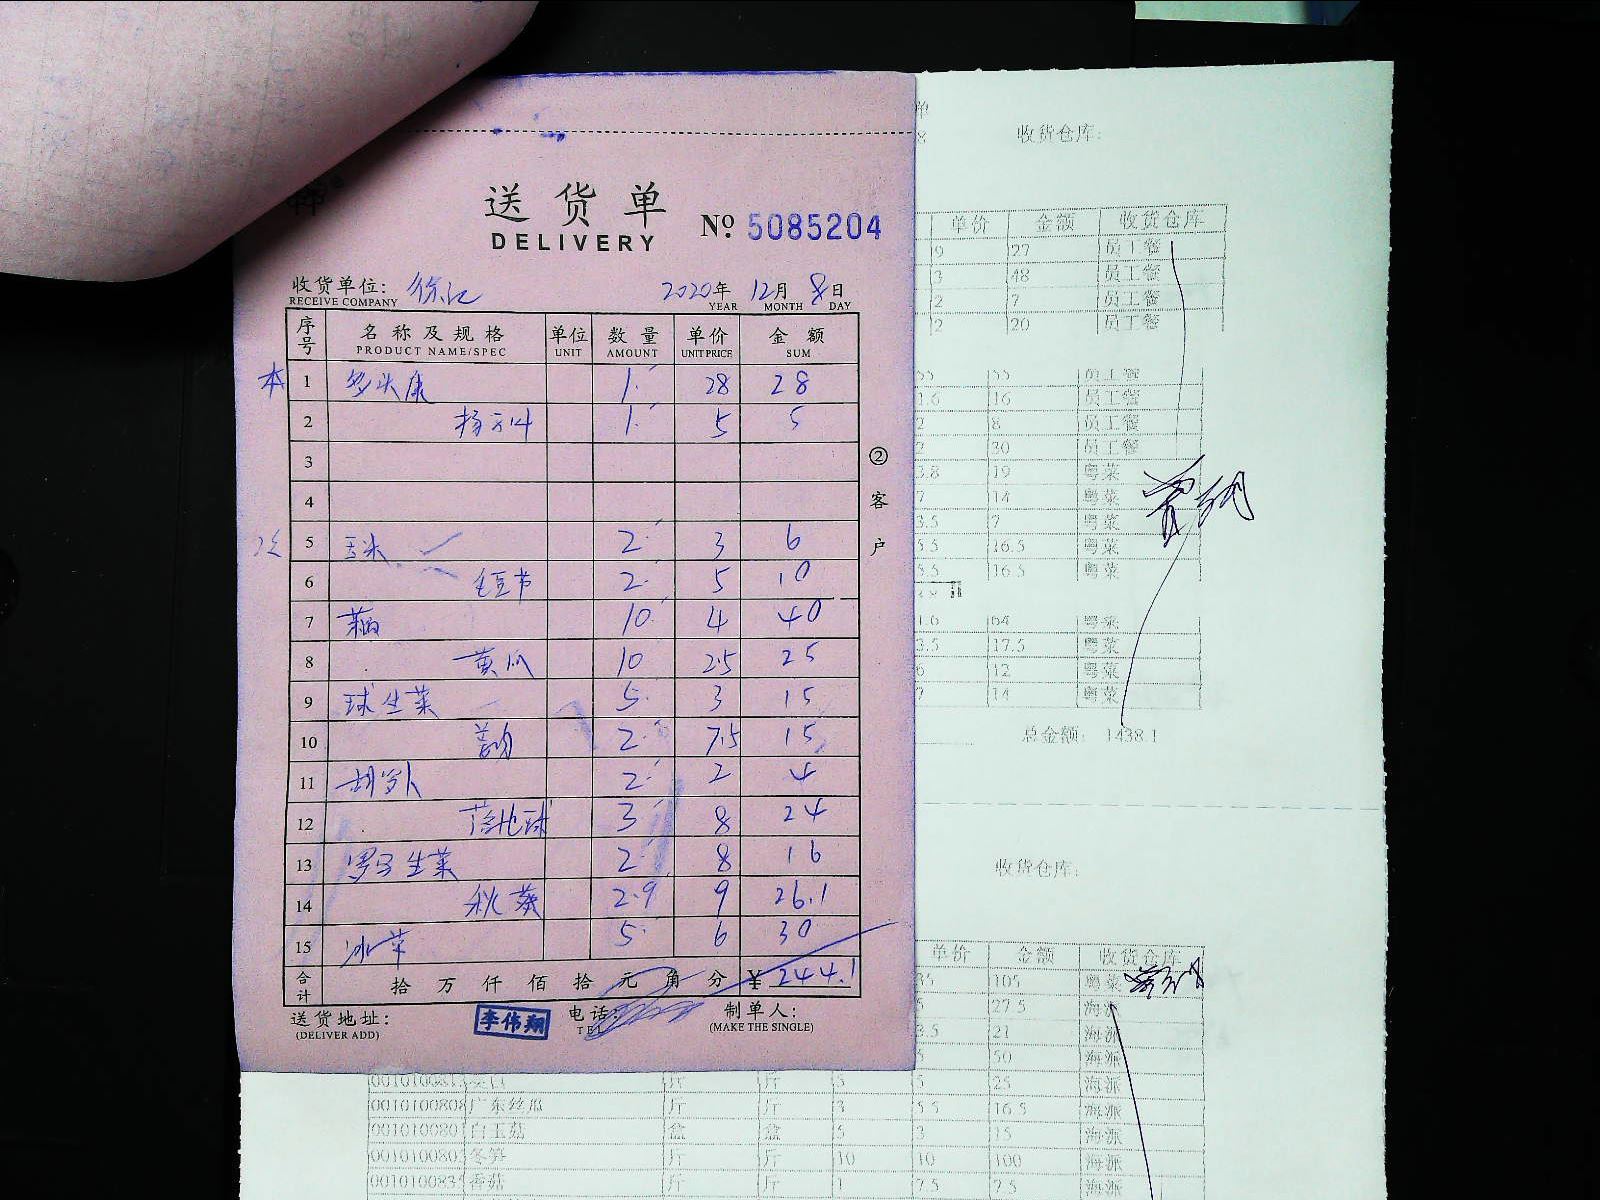 送货单
DELIVERY
№ 5085204
收货单位: 徐汇 2020年 12月 8日
RECEIVE COMPANY YEAR MONTH DAY
序号 名称及规格 单位 数量 单价 金额
PRODUCT NAME/SPEC UNIT AMOUNT UNIT PRICE SUM
本 1 1 28 28
2 1 5 5
3
4
5 玉米 2 3 6
6 毛豆节 2 5 10
7 10 4 40
8 黄瓜 10 2.5 25
9 球生菜 5 3 15
10 2 7.5 15
11 胡罗卜 2 2 4
12 3 8 24
13 罗马生菜 2 8 16
14 秋葵 2.9 9 26.1
15 冰草 5 6 30
合计 拾 万 仟 佰 拾 元 角 分 ¥ 244.1
送货地址: 李伟翔 电话: 制单人:
(DELIVER ADD) TEL (MAKE THE SINGLE)
②客户
收货仓库:
单价 金额 收货仓库
9 27 员工餐
3 48 员工餐
2 7 员工餐
2 20 员工餐
55 员工餐
1.6 16 员工餐
2 8 员工餐
员工餐
3.8 19 粤菜
7 14 粤菜
3.5 7 粤菜
5.5 16.5 粤菜
5.5 16.5 粤菜
1.6 64 粤菜
3.5 17.5 粤菜
6 12 粤菜
7 14 粤菜
总金额: 1438.1
收货仓库:
单价 金额 收货仓库
35 105 粤菜
27.5 海派
3.5 21 海派
50 海派
斤 斤 5 5 25 海派
0010100808 广东丝瓜 斤 斤 3 5.5 16.5 海派
001010080 白玉菇 盒 盒 5 3 15 海派
001010080 冬笋 斤 斤 10 10 100 海派
001010083 香菇 斤 斤 1 7.5 7.5 海派